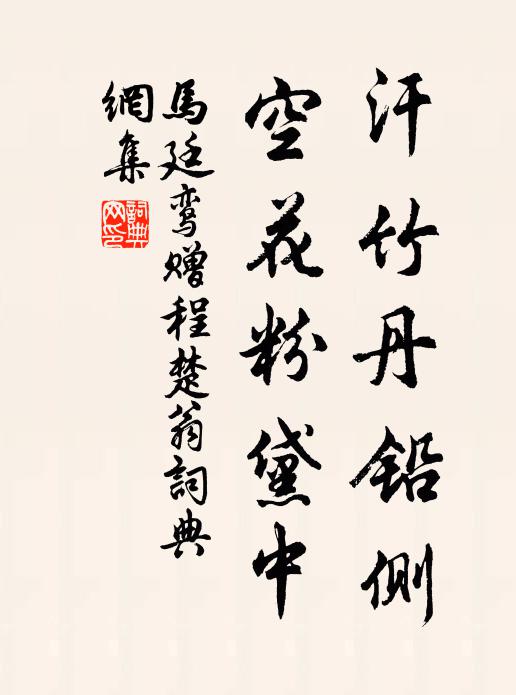 汗竹丹铅侧
空花粉黛中
馬廷鸾赠程楚翁詞典
網集
詞典網印